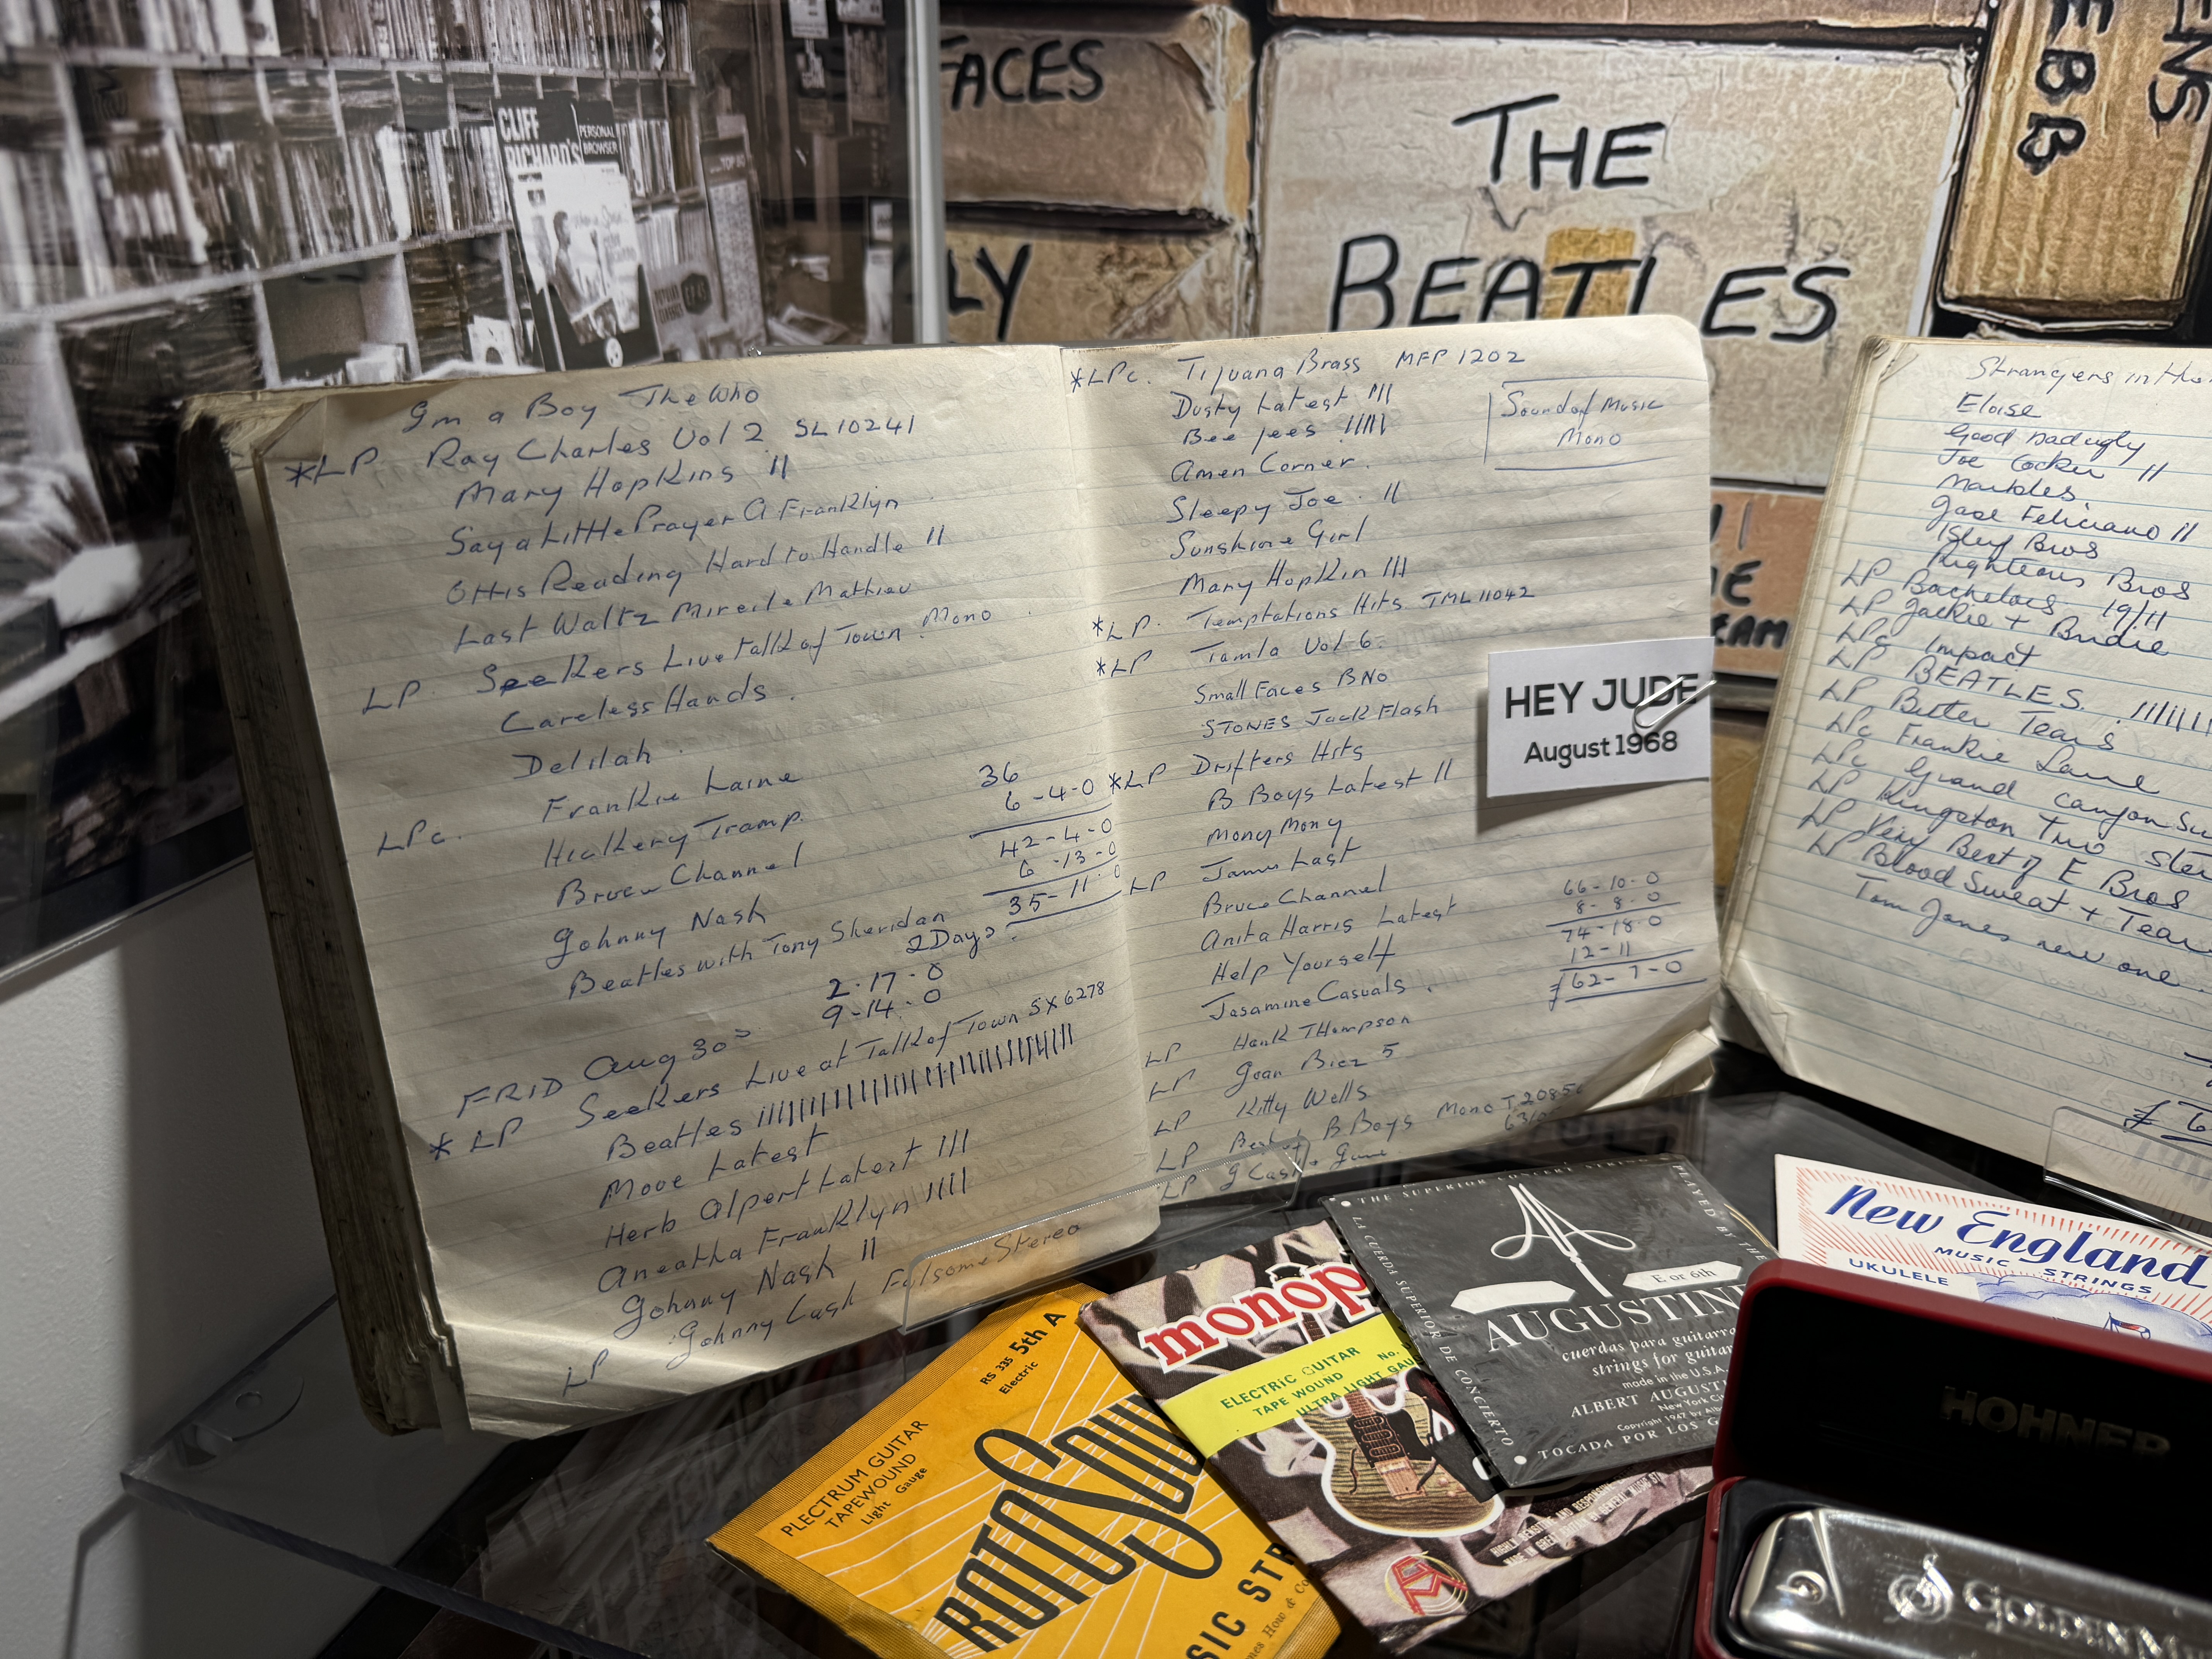 CLIFF
RICHARD'S
PERSONAL
BROWSER
TOP
FACES
LY
THE
BEATLES
EBB
ENS
EAM
I'm a Boy The Who
*LP Ray Charles Vol 2 SL 10241
Mary Hopkins II
Say a Little Prayer A Franklyn
Ottis Reading Hard to Handle II
Last Waltz Mireile Mathieu
LP. Seekers Live talk of Town. Mono
Careless Hands.
Delilah.
LPc. Frankie Laine
Hickery Tramp.
Bruce Channel
Johnny Nash
Beatles with Tony Sheridan
36
6-4-0
42-4-0
6-13-0
35-11-0
2 Days
2-17-0
9-14-0
FRID Aug 30
*LP Seekers Live at Talk of Town SX6278
Beatles
Move Latest
Herb Alpert Latest III
Areatha Franklyn IIII
Johnny Nash II
LP Johnny Cash Folsome Stereo
*LPc. Tijuana Brass MFP 1202
Dusty Latest III
Bee jees IIIII
Sound of Music
Mono
Amen Corner.
Sleepy Joe. II
Sunshine Girl
Mary Hopkin III
*LP. Temptations Hits TML11042
*LP Tamla Vol 6.
Small Faces B No
STONES Jack Flash
*LP Drifters Hits
B Boys Latest II
Mony Mony
LP James Last
Bruce Channel
Anita Harris Latest
Help Yourself
Jasamine Casuals.
66-10-0
8-8-0
74-18-0
12-11
£62-7-0
LP Hank THompson
LP Joan Biez 5
LP Kitty Wells
LP Best of B Boys Mono T 20856
LP J Cash
HEY JUDE
August 1968
Strangers in the
Eloise
Good bad ugly
Joe Cocker II
Marbles.
Jose Feliciano II
Isley Bros
Righteous Bros
LP Bachelors 19/11
LP Jackie + Bridie
LPc Impact
LP BEATLES.
LP Bitter Tears
LPc Frankie Lane
LPc Grand Canyon Su
LP Kingston Trio Ster
LP Very Best of E Bros
LP Blood Sweat + Tear
Tom Jones new one.
RS 335 5th A
Electric
PLECTRUM GUITAR
TAPEWOUND
Light Gauge
ROTOSOU
SIC STR
monop
ELECTRIC GUITAR
TAPE WOUND
ULTRA LIGHT GAU
THE SUPERIOR CONCERT STRING
PLAYED BY THE
LA CUERDA SUPERIOR DE CONCIERTO
E or 6th
AUGUSTIN
cuerdas para guitarra
strings for guitar
made in the U.S.A.
ALBERT AUGUST
New York Ci
Copyright 1947 by Alb
TOCADA POR LOS G
New England
MUSIC STRINGS
UKULELE
HOHNER
GOLDEN M